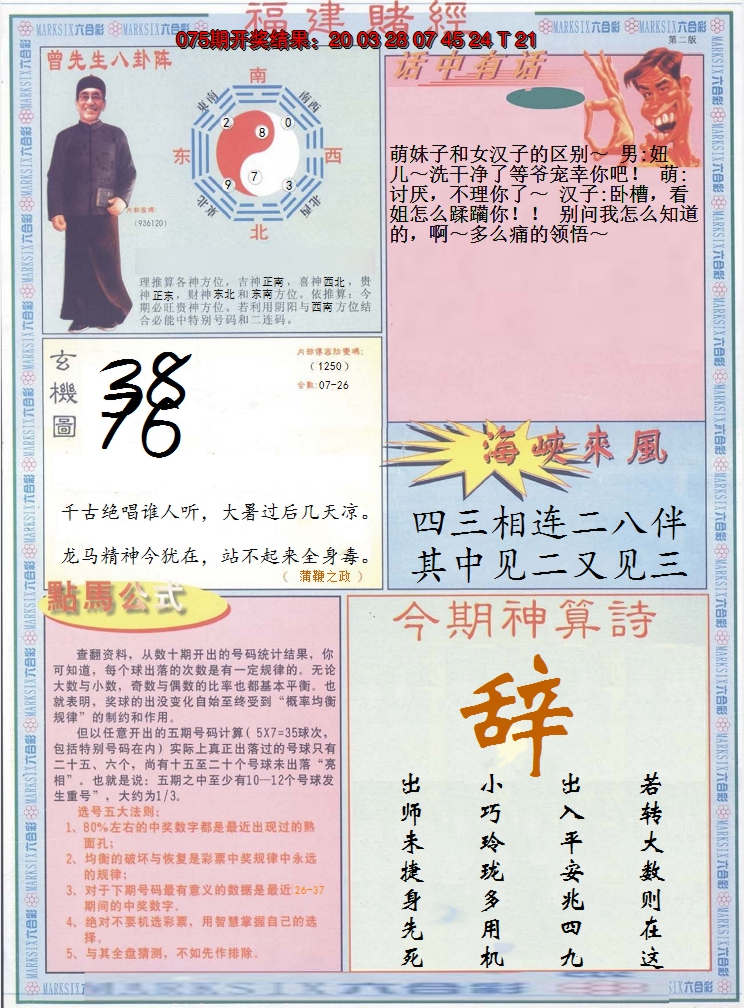 福建賭經
075期开奖结果：20 03 28 07 45 24 T 21
第二版
曾先生八卦陈
南
東南
南西
2
8
0
东
西
9
7
3
東北
北西
北
内部密碼:
（936120）
理推算各神方位，吉神正南，喜神西北，贵
神正东，财神东北和东南方位。依推算：今
期必旺贵神方位。若利用阴阳与西南方位结
合必能中特别号码和二连码。
话中有话
萌妹子和女汉子的区别～ 男:妞
儿～洗干净了等爷宠幸你吧！ 萌:
讨厌，不理你了～ 汉子:卧槽，看
姐怎么蹂躏你！！ 别问我怎么知道
的，啊～多么痛的领悟～
玄機圖
38
76
内部傳容防密碼:
（1250）
合数:07-26
千古绝唱谁人听，大暑过后几天凉。
龙马精神今犹在，站不起来全身毒。
（ 蒲鞭之政 ）
海峽來風
四三相连二八伴
其中见二又见三
點馬公式
查翻资料，从数十期开出的号码统计结果，你
可知道，每个球出落的次数是有一定规律的。无论
大数与小数，奇数与偶数的比率也都基本平衡。也
就表明，奖球的出没变化自始至终受到“概率均衡
规律”的制约和作用。
但以任意开出的五期号码计算( 5X7=35球次，
包括特别号码在内) 实际上真正出落过的号球只有
二十五、六个，尚有十五至二十个号球未出落“亮
相”。也就是说：五期之中至少有10—12个号球发
生重号”，大约为1/3。
选号五大法则：
1、80%左右的中奖数字都是最近出现过的熟
面孔；
2、均衡的破坏与恢复是彩票中奖规律中永远
的规律；
3、对于下期号码最有意义的数据是最近26-37
期间的中奖数字。
4、绝对不要机选彩票，用智慧掌握自己的选
择。
5、与其全盘猜测，不如先作排除。
今期神算詩
辞
若转大数则在这
出入平安兆四九
小巧玲珑多用机
出师未捷身先死
MARKSIX六合彩